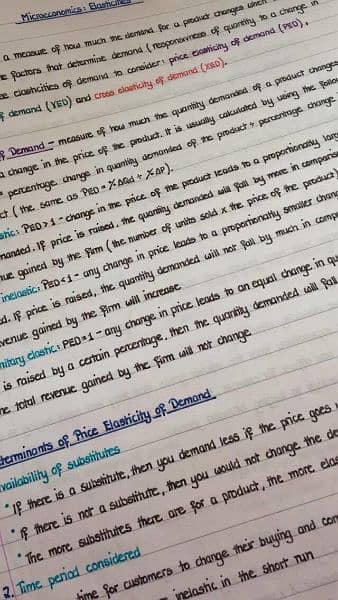 Microeconomics: Elasticities
a measure of how much the demand for a product changes when
factors that determine demand (responsiveness of quantity to a change in
elasticities of demand to consider: price elasticity of demand (PED),
of demand (YED) and cross elasticity of demand (XED).
of Demand - measure of how much the quantity demanded of a product changes
a change in the price of the product. It is usually calculated by using the
percentage change in quantity demanded of the product ÷ percentage change
(the same as PED = %ΔQd ÷ %ΔP).
PED>1 - change in the price of the product leads to a proportionally
manded. If price is raised, the quantity demanded will fall by more in
gained by the firm (the number of units sold x the price of the product)
inelastic: PED<1 - any change in price leads to a proportionally smaller
If price is raised, the quantity demanded will not fall by much in
venue gained by the firm will increase.
nitary elastic: PED=1 - any change in price leads to an equal change in
is raised by a certain percentage, then the quantity demanded will fall
total revenue gained by the firm will not change.
terminants of Price Elasticity of Demand
vailability of substitutes
• If there is a substitute, then you demand less if the price goes
• If there is not a substitute, then you would not change the
• The more substitutes there are for a product, the more
2. Time period considered
time for customers to change their buying and
inelastic in the short run